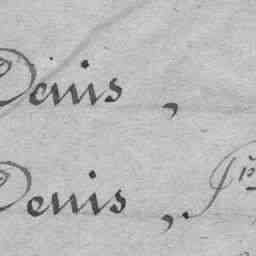 Denis,
Denis,